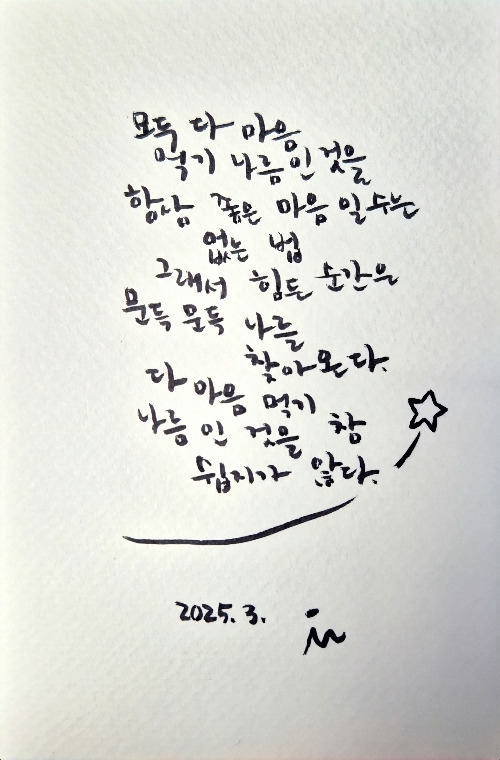 모두 다 마음
먹기 나름인 것을
항상 좋은 마음 일 수는
없는 법
그래서 힘든 순간은
문득 문득 나를
찾아온다.
다 마음 먹기
나름 인 것을 참
쉽지가 않다.
2025. 3.